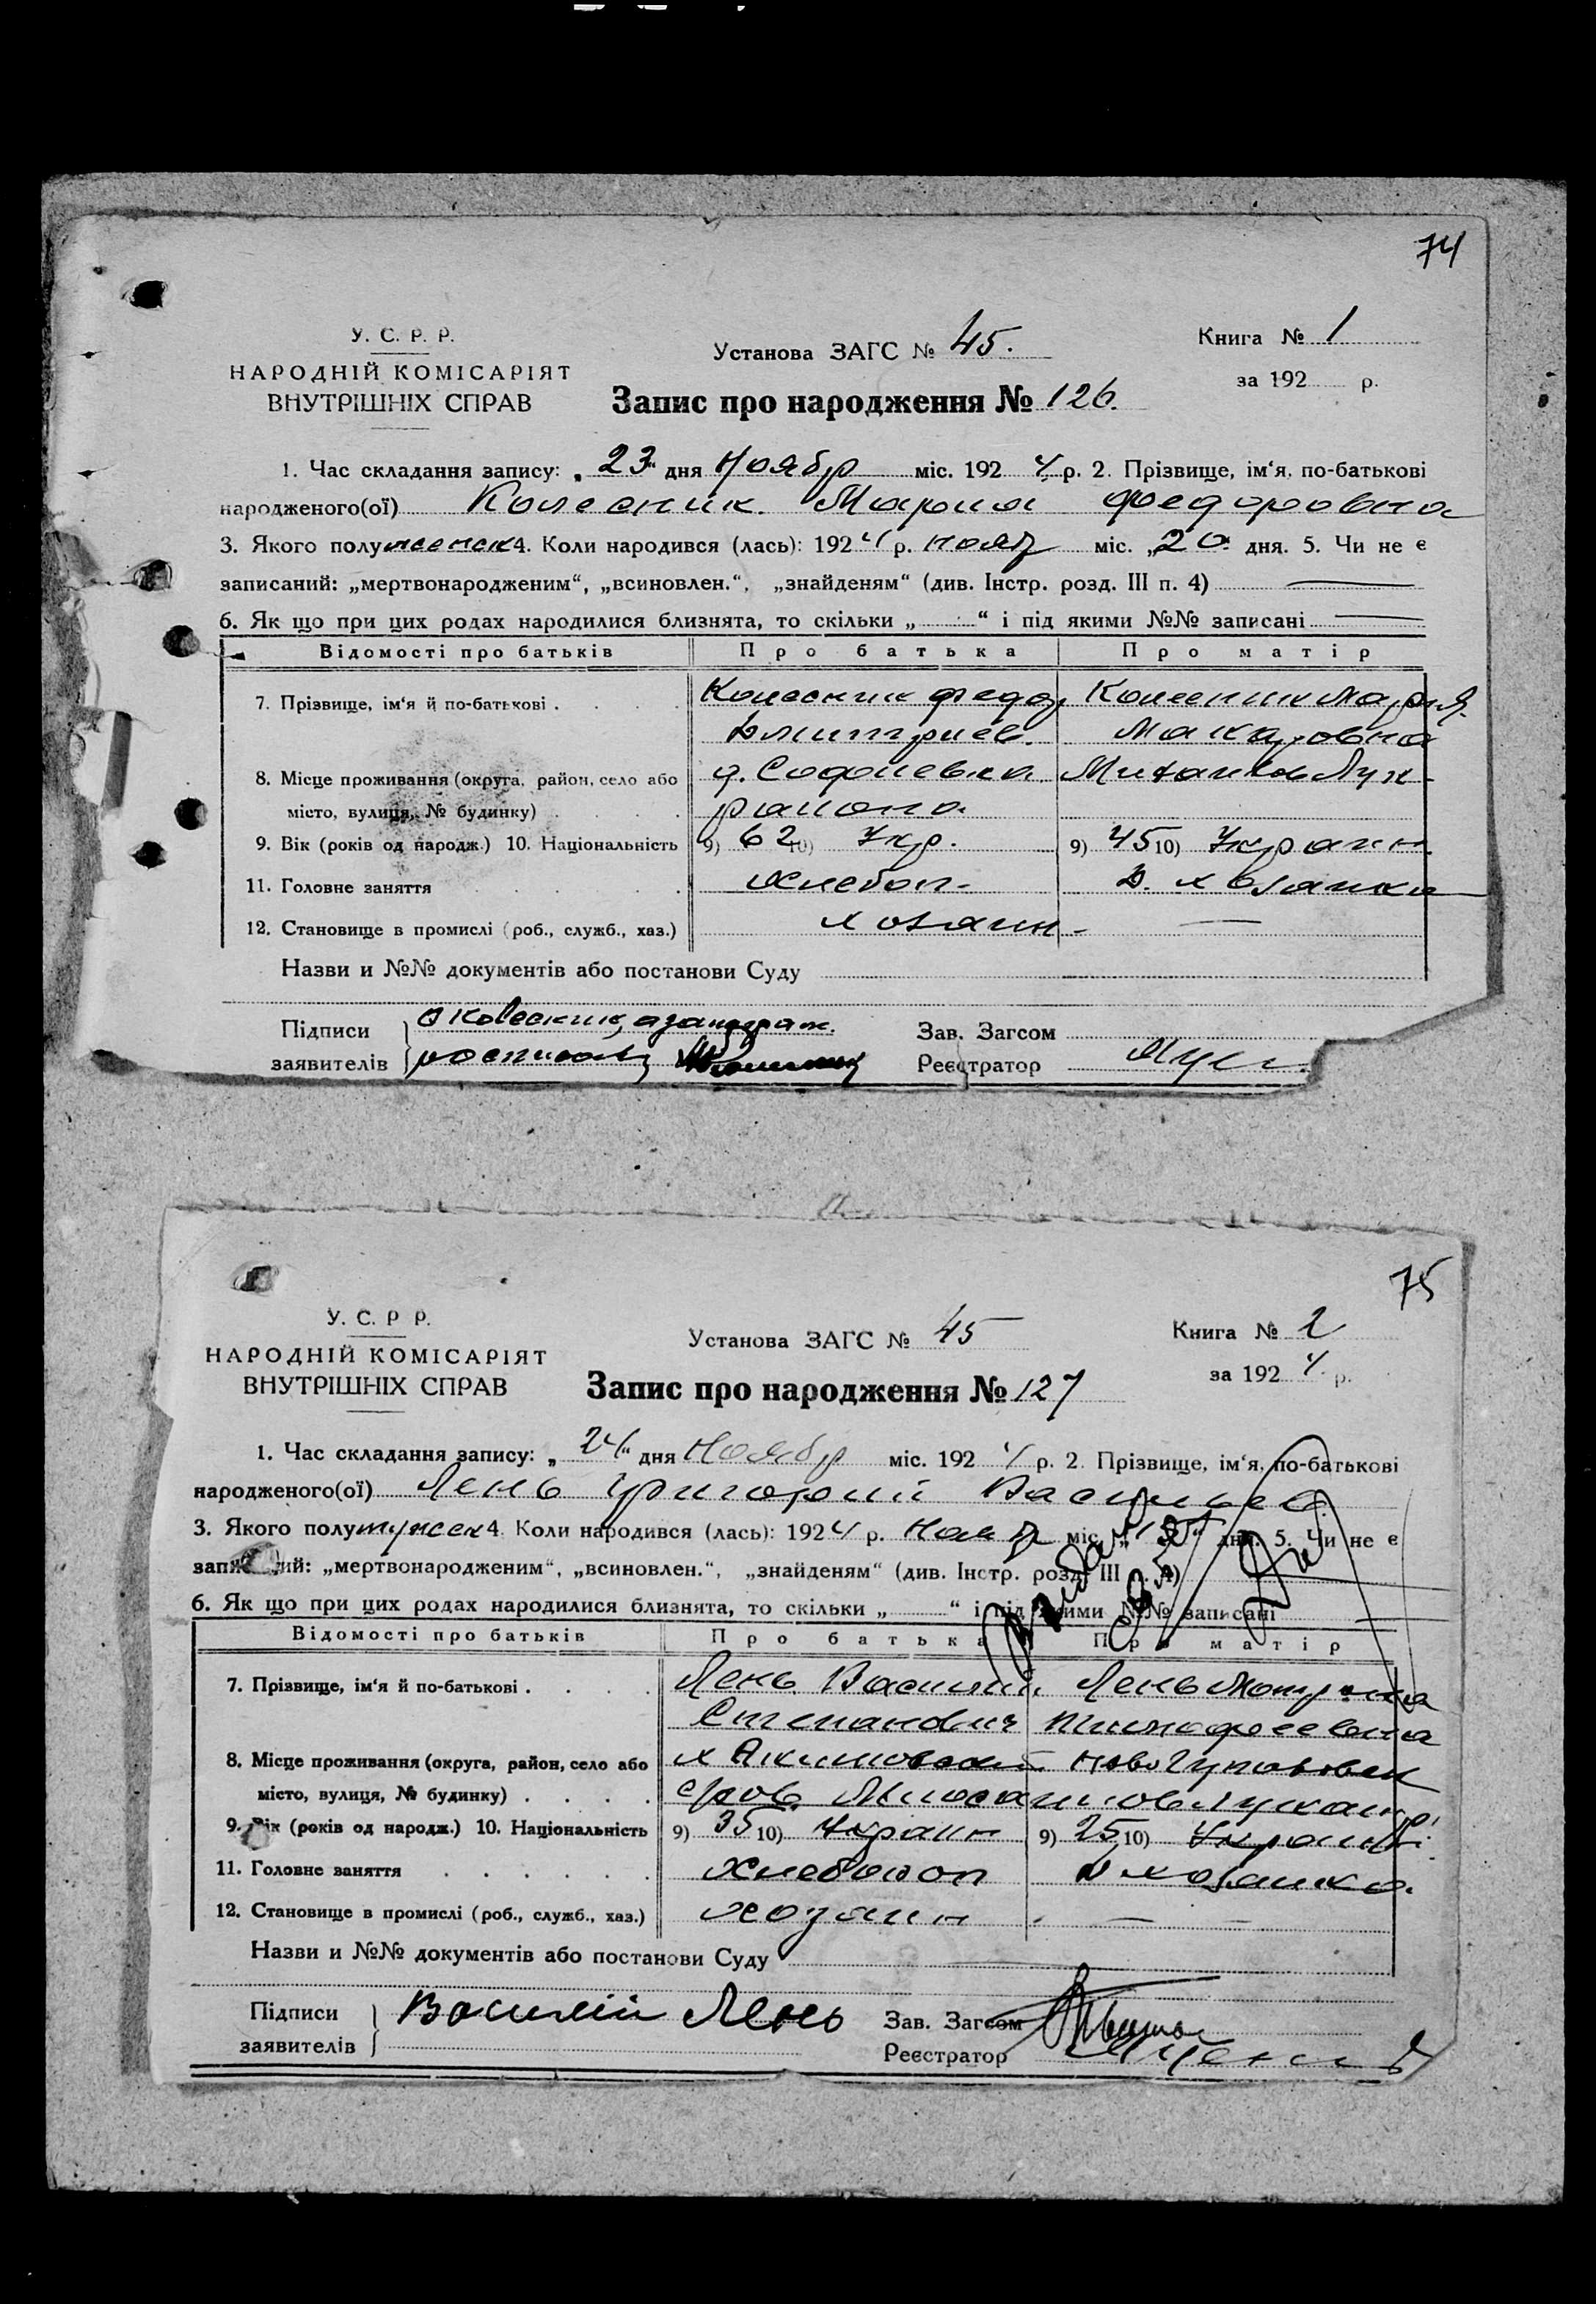 74
У. С. Р. Р.
НАРОДНІЙ КОМІСАРІЯТ
ВНУТРІШНІХ СПРАВ
Установа ЗАГС № 45.
Книга № 1
за 192 р.
Запис про народження № 126.
1. Час складання запису: „23“ дня Ноябр міс. 1924 р. 2. Прізвище, ім‘я, по-батькові
народженого(ої) Колесник Мария Федоровна
3. Якого полу женск 4. Коли народився (лась): 1924 р. нояб міс. „20“ дня. 5. Чи не є
записаний: „мертвонародженим“, „всиновлен.“, „знайденям“ (див. Інстр. розд. III п. 4)
6. Як що при цих родах народилися близнята, то скільки „ “ і під якими №№ записані
Відомості про батьків Про батька Про матір
7. Прізвище, ім‘я й по-батькові . . . . Колесник Федор Колесник Мария
Дмитриев. Макаровна
8. Місце проживання (округа, район, село або д. Софиевка
місто, вулиця, № будинку) . . . . района
9. Вік (років од народж.) 10. Національність 9) 62 10) Укр. 9) 45 10) Украин
11. Головне заняття . . . . Хлебоп. Д. хозяйка
12. Становище в промислі (роб., служб., хаз.) хозяин —
Назви и №№ документів або постанови Суду
Підписи заявителів
Зав. Загсом
Реєстратор
75
У. С. Р Р.
НАРОДНІЙ КОМІСАРІЯТ
ВНУТРІШНІХ СПРАВ
Установа ЗАГС № 45
Книга № 2
за 1924 р.
Запис про народження № 127
1. Час складання запису: „24“ дня Ноябр міс. 1924 р. 2. Прізвище, ім‘я, по-батькові
народженого(ої) Лень Григорий Васильев
3. Якого полу мужск 4. Коли народився (лась): 1924 р. нояб міс. дня. 5. Чи не є
записаний: „мертвонародженим“, „всиновлен.“, „знайденям“ (див. Інстр. розд. III п. 4)
6. Як що при цих родах народилися близнята, то скільки „ “ і під якими №№ записані
Відомості про батьків Про батька Про матір
7. Прізвище, ім‘я й по-батькові . . . . Лень Василий Лень Мотрона
Степанович Тимофеевна
8. Місце проживання (округа, район, село або х Акимовский
місто, вулиця, № будинку) . . . .
9. Вік (років од народж.) 10. Національність 9) 35 10) Украин 9) 25 10)
11. Головне заняття . . . . . . Хлебороб Д хозяйка.
12. Становище в промислі (роб., служб., хаз.) хозяин —
Назви и №№ документів або постанови Суду
Підписи заявителів Василий Лень
Зав. Загсом
Реєстратор